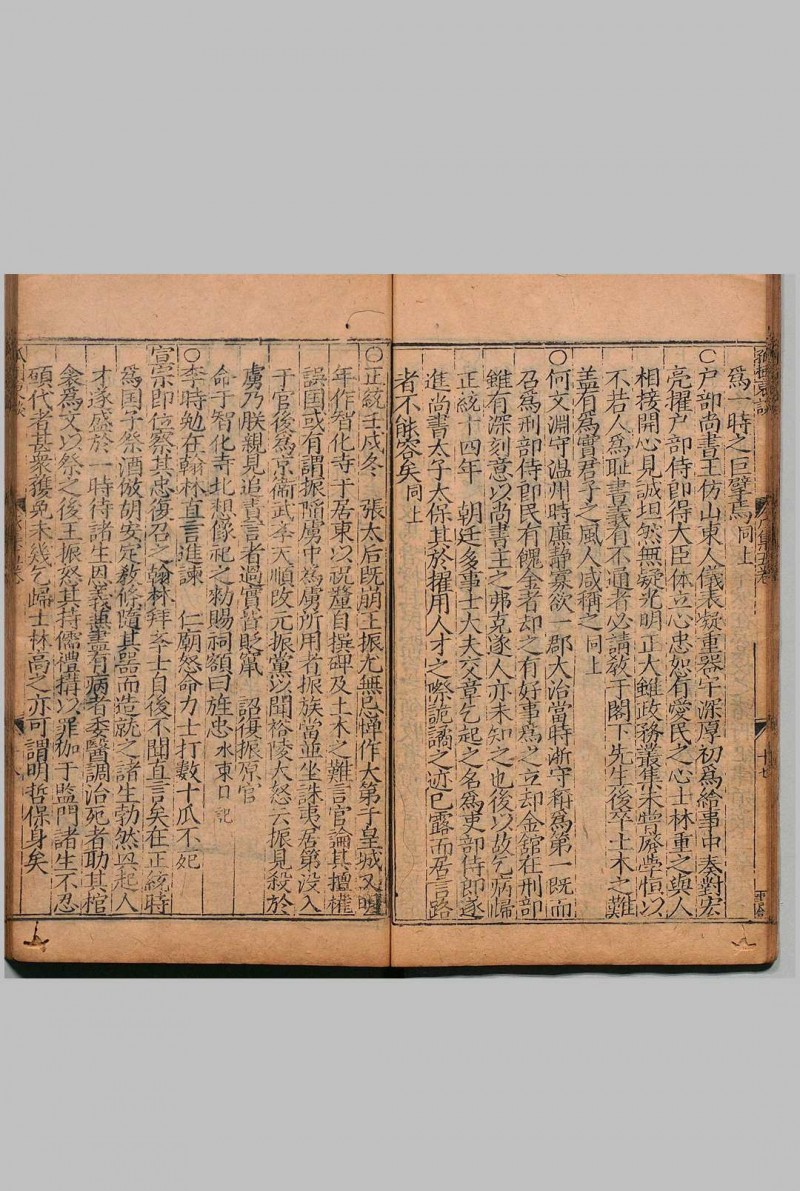 爲一時之巨擘焉同上
○户部尚書王仿山東人儀表凝重器宇深厚初爲給事中奏對宏
亮擢户部侍郎得大臣体立心忠恕有愛民之心士林重之與人
相接開心見誠坦然無疑光明正大雖政務叢集未嘗廢學恒以
不若人爲耻書義有不通者必請敎于閣下先生後卒土木之難
盖有爲實君子之風人咸稱之同上
○何文淵守温州時廉静寡欲一郡大治當時浙守稱爲第一既而
召爲刑部侍郎民有餽金者却之有好事爲之立却金舘在刑部
雖有深刻意以尚書主之弗克遂人亦未知之也後以故乞病歸
正統十四年　朝廷多事士大夫交章乞起之名爲吏部侍郎遂
進尚書太子太保其於擢用人才之際詭譎之迹已露而居言路
者不能容矣同上
○正統壬戌冬　張太后既崩王振尤無忌憚作大第于皇城又明
年作智化寺于居東以祝釐自撰碑及土木之難言官論其擅權
誤国或有謂振陷虜中爲虜所用者振族當並坐誅夷居第没入
于官後爲京衛武斈天順改元振黨以聞裕陵大怒云振見殺於
虜乃朕親見追責言者過實皆貶竄　詔復振原官
命于智化寺北想像祀之勑賜祠額曰旌忠水東日記
○李時勉在翰林直言進諫　仁廟怒命力士打数十瓜不死
宣宗即位察其忠復召之翰林拜斈士自後不聞直言矣在正統時
爲国子祭酒倣胡安定敎條隨其器而造就之諸生勃然興起人
才遂盛於一時待諸生恩義兼盡有病者委醫調治死者助其棺
衾爲文以祭之後王振怒其持儒禮搆以罪枷于監門諸生不忍
頭代者甚衆獲免未幾乞歸士林高之亦可謂明哲保身矣
十七